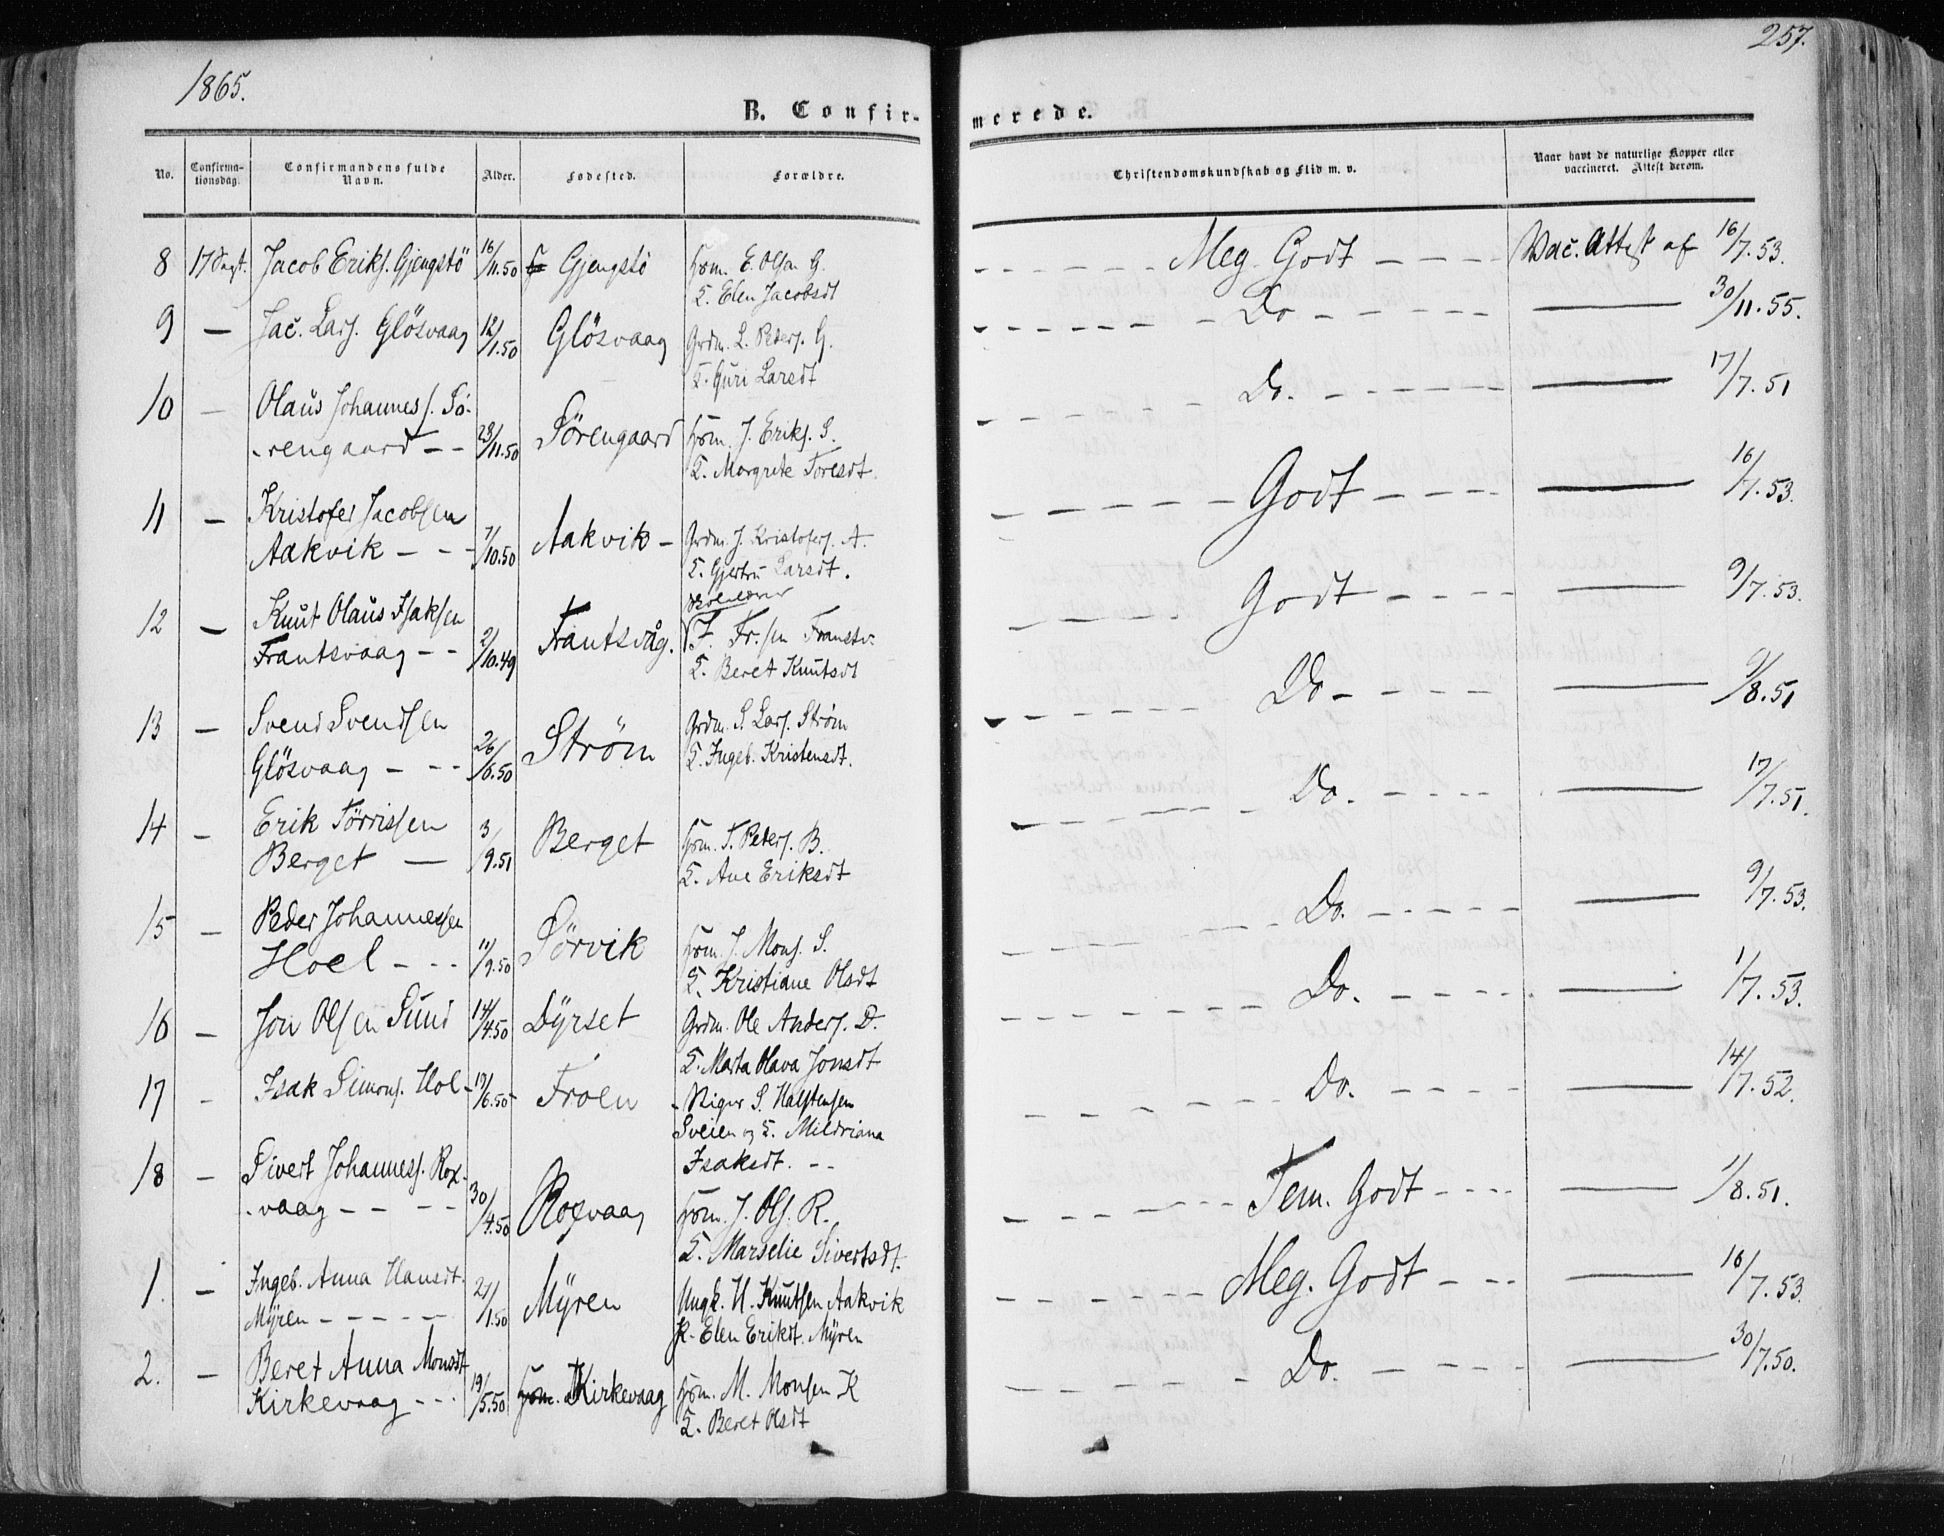 1865.
257.
B. Confir-
merede.
No.
Confirma-
tionsdag.
Confirmandens fulde
Navn.
Alder.
Fødested.
Forældre.
Christendomskundskab og Flid m. v.
Naar havt de naturlige Kopper eller
vaccineret. Attest derom.
8 Jacob Eriks. Gjengstö 16/11.50 Gjengstö Hsm. E. Olsen G. Meg. Godt Vac. Attest af 16/7.53.
K. Elen Jacobsdt
9 — Jac. Lars. Glösvaag 12/1.50 Glösvaag Grdm. L. Peders. G. Do — 30/11.55.
K. Guri Larsdt
10 — Olaus Johanness. Sö- Do. — 17/7.51
-rengaard — 23/11.50 Sörengaard Hsm. J. Eriks. S.
K. Margrete Toresdt.
11 — Kristofer Jacobsen Godt — 16/7.53.
Aakvik — 7/10.50 Aakvik — Grdm. J. Kristofers. A.
K. Gjertru Larsdt.
12 — Knut Olaus Isaksen Godt — 9/7.53.
Frantsvaag — 2/10.49 Frantsvåg. I. Fr.sen Frantsv.
K. Beret Knutsdt
13 — Svend Svendsen Grdm. S. Lars. Strøm Do — 9/8.51
Glösvaag — 26/6.50 Strøm K. Ingeb. Kristensdt.
14 — Erik Törrissen Do. — 17/7.51.
Berget — 3/9.51 Berget Hsm. T. Peders. B.
K. Ane Eriksdt
15 — Peder Johannessen Do. — 9/7.53.
Hoel — 11/9.50 Sörvik Hsm. J. Mons. S.
K. Kristiane Olsdt
16 — Jon Olsen Sund 14/4.50 Dÿrset Grdm. Ole Anders. D. Do. — 1/7.53.
K. Marta Olava Jonsdt
17 — Isak Simons. Hol — 19/6.50 Froen S. Halstensen Do. — 14/7.52.
Sveien og K. Mildriana
Isaksdt. —
18 — Sivert Johanness. Rox- Tem. Godt — 1/8.51.
-vaag — 30/4.50 Roxvaag Hsm. J. Ols. R.
K. Marselie Sivertsdt.
1. — Ingeb. Anna Hansdt. Meg. Godt — 16/7.53
Mÿren — 21/1.50 Mÿren Ungk. H. Knutsen Aakvik
P. Elen Eriksdt. Mÿren
2. — Beret Anna Monsdt Do. — 30/7.50.
Kirkevaag — 19/5.50 Kirkevaag Hsm. M. Monsen K
K. Beret Olsdt